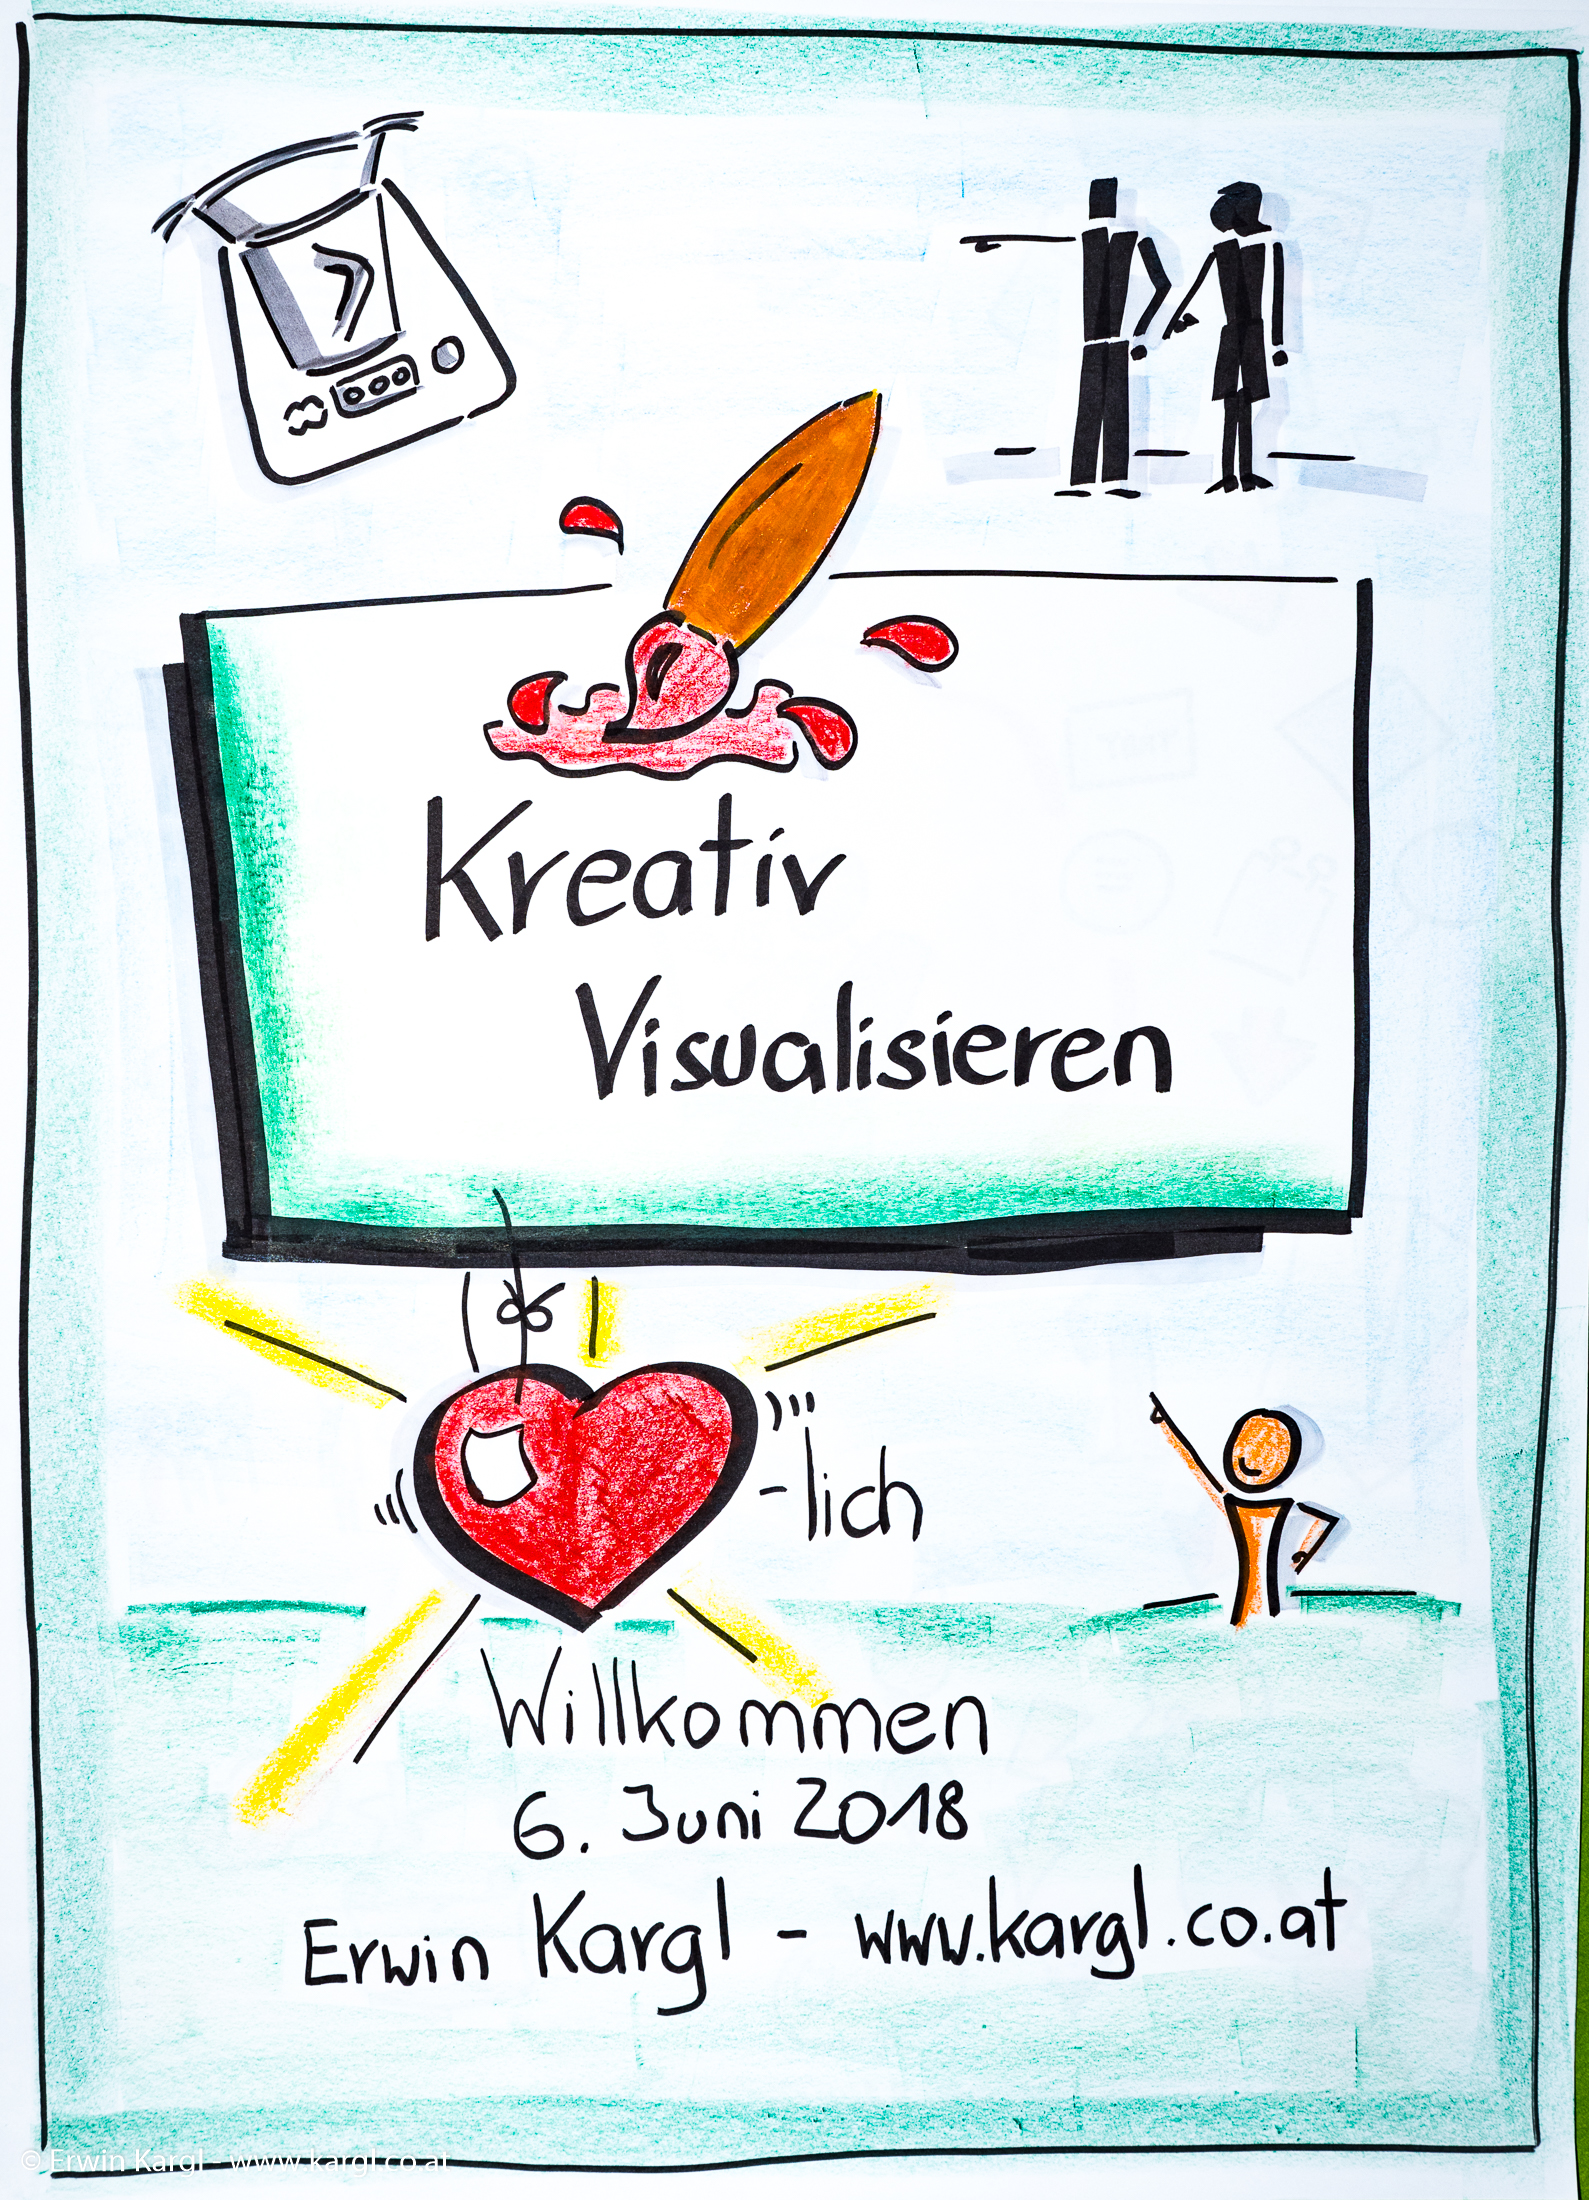 Kreativ
Visualisieren
-lich
Willkommen
6. Juni 2018
Erwin Kargl - www.kargl.co.at
© Erwin Kargl - www.kargl.co.at